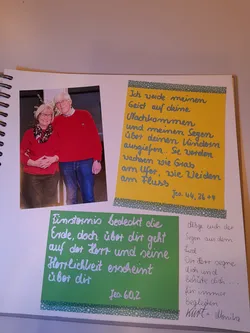 Ich werde meinen
Geist auf deine
Nachkommen
und meinen Segen
über deinen Kindern
ausgießen. Sie werden
wachsen wie Gras
am Ufer, wie Weiden
am Fluss
Jes. 44, 3b+4
Finsternis bedeckt die
Erde, doch über dir geht
auf der Herr und seine
Herrlichkeit erscheint
über dir
Jes. 60,2
Segen
Der Herr segne
dich und
behüte dich
für immer